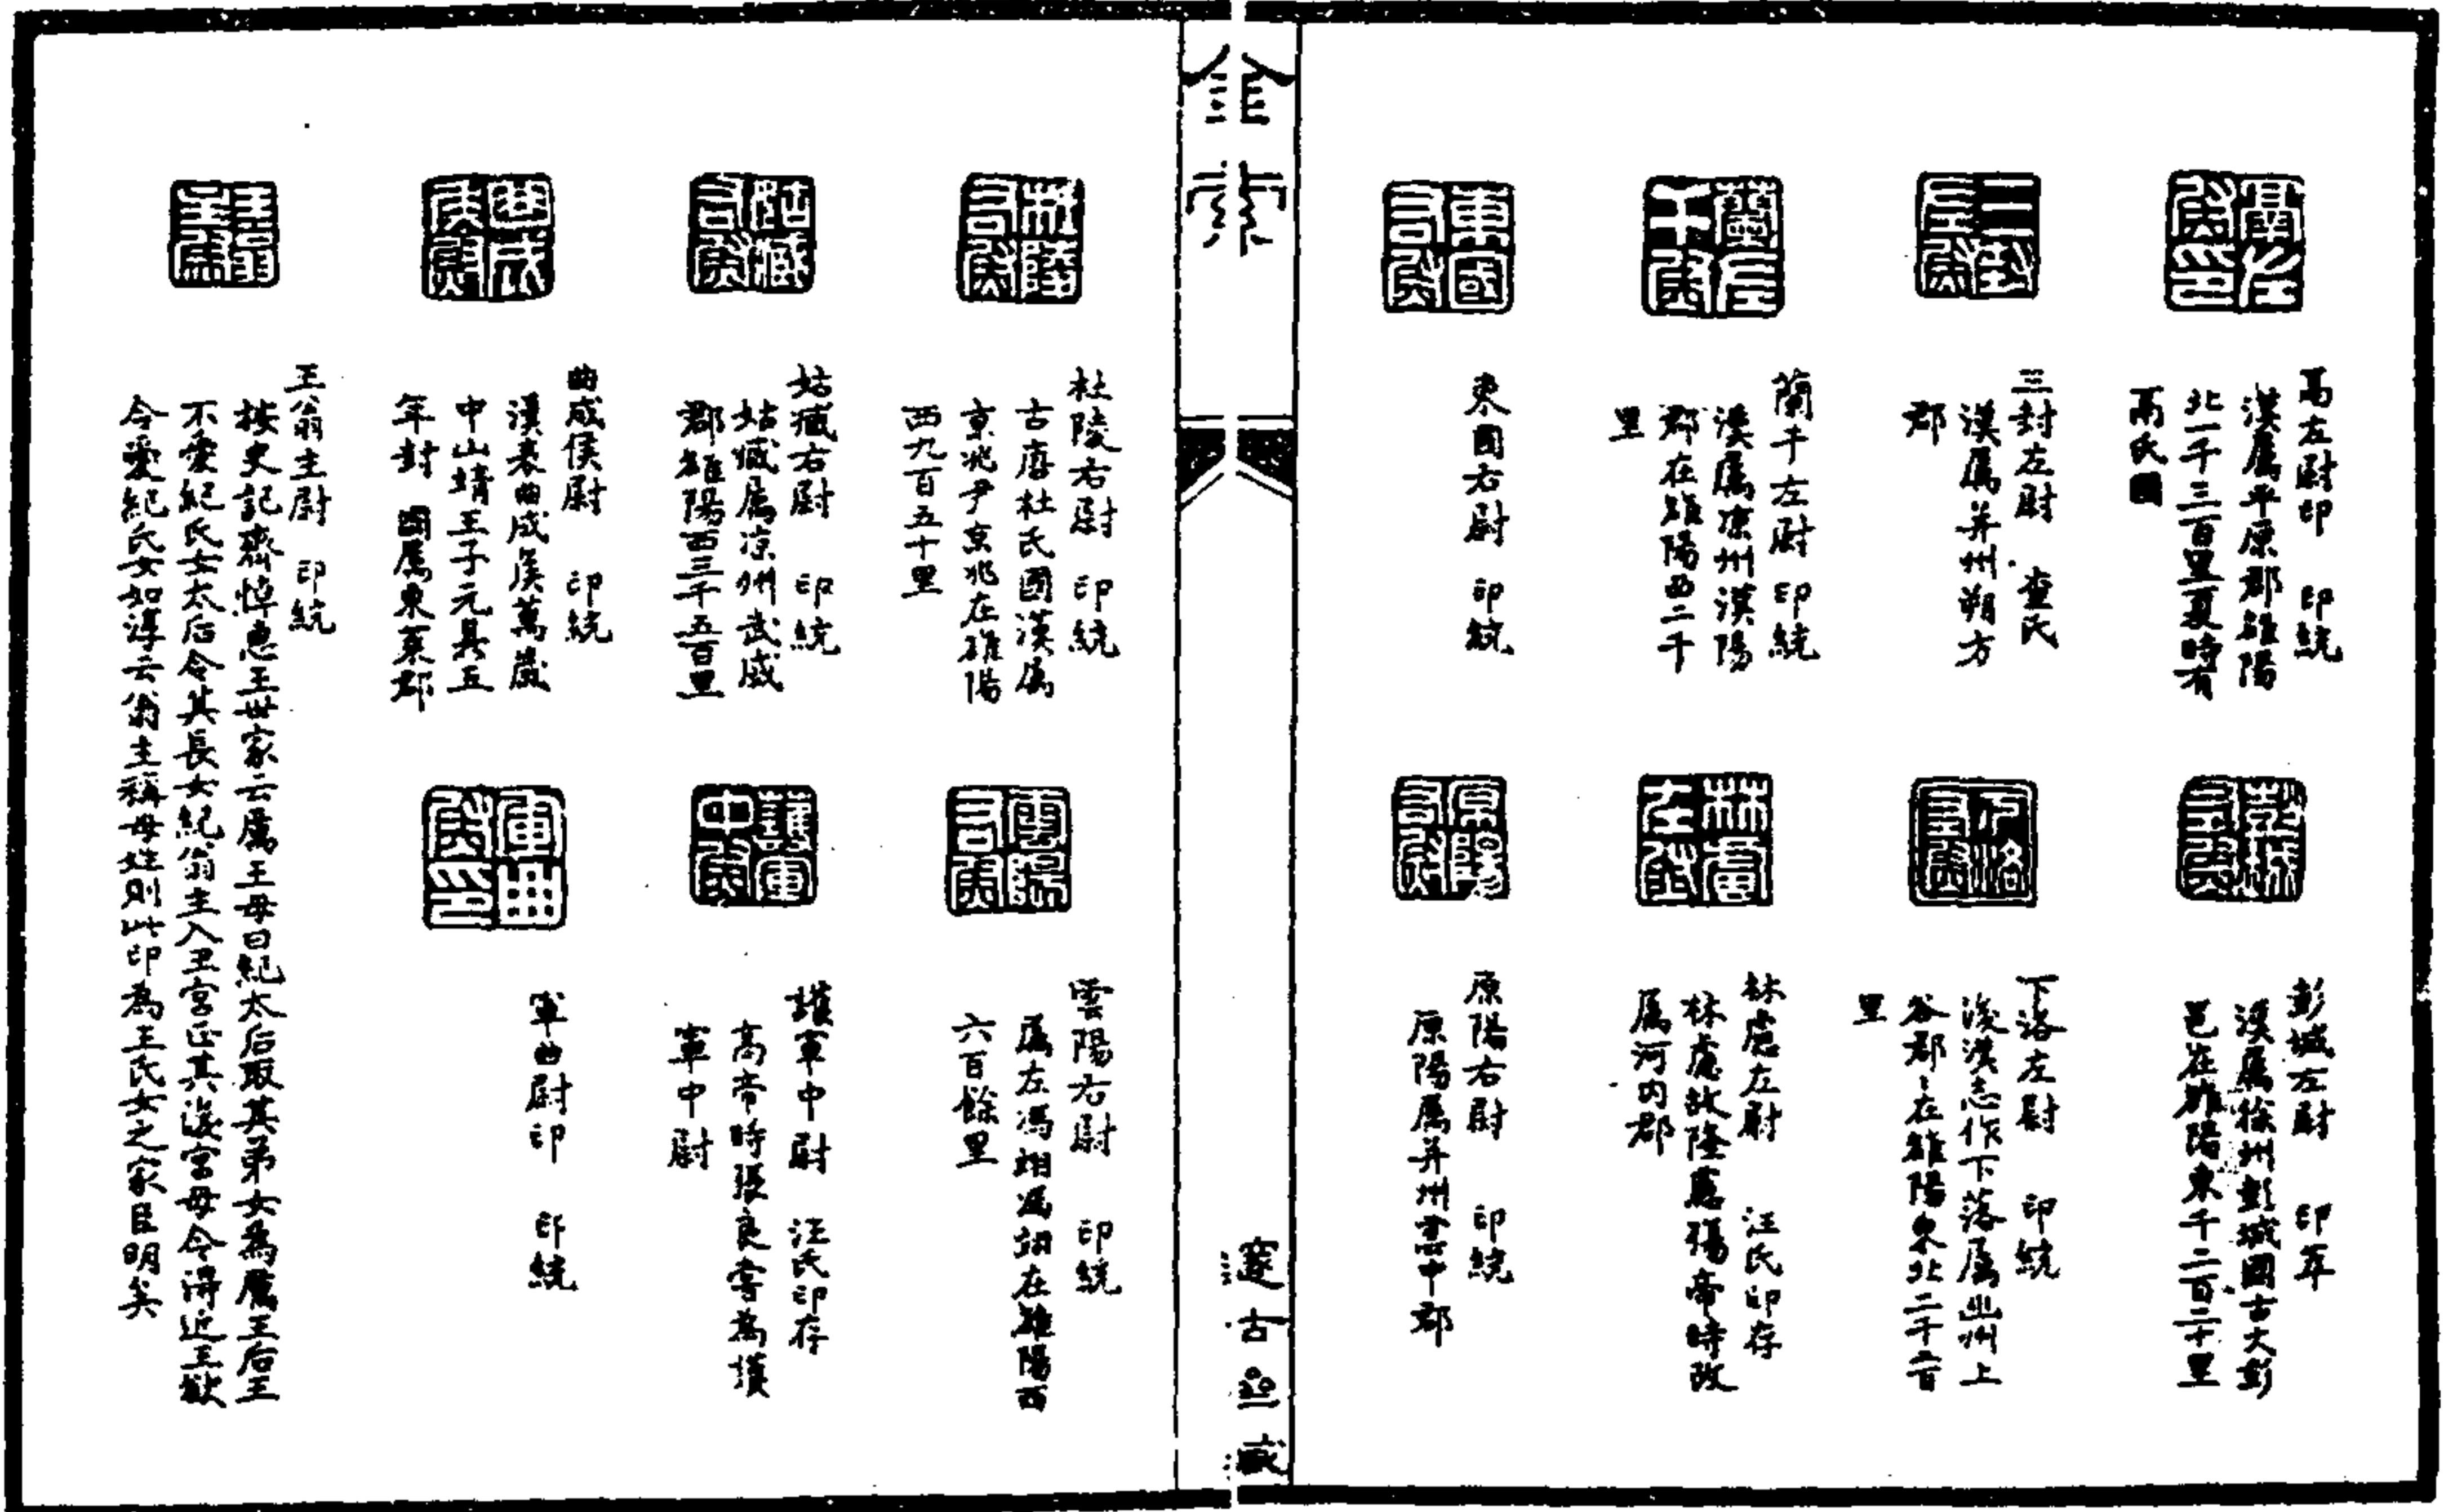 鬲左
尉印
鬲左尉印 印統
漢属平原郡雒陽
北一千三百里夏時有
鬲氏國
彭城
左尉
彭城左尉 印萃
漢属徐州彭城國古大彭
邑在雒陽東千二百二十里
三封
左尉
三封左尉 查氏
漢属并州朔方
郡
下洛
左尉
下洛左尉 印統
後漢志作下落属幽州上
谷郡〻在雒陽東北二千
里
蘭左
干尉
蘭干左尉 印統
漢属凉州漢陽
郡在雒陽西二千
里
林慮
左尉
林慮左尉 汪氏印存
林慮故隆慮殤帝時改
属河内郡
東國
右尉
東國右尉 印統
原陽
右尉
原陽右尉 印統
原陽属并州雲中郡
金索
邃古齋藏
杜陵
右尉
杜陵右尉 印統
古唐杜氏國漢属
京兆尹京兆在雒陽
西九百五十里
雲陽
右尉
雲陽右尉 印統
属左馮翊馮翊在雒陽西
六百餘里
姑臧
右尉
姑臧右尉 印統
姑臧属凉州武威
郡雒陽西三千五百里
護軍
中尉
護軍中尉 汪氏印存
高帝時張良嘗為護
軍中尉
曲成
侯尉
曲成侯尉 印統
漢表曲成侯萬歲
中山靖王子元朔五
年封 國属東萊郡
軍曲
尉印
軍曲尉印 印統
王翁
主尉
王翁主尉 印統
按史記齊悼惠王世家云厲王母曰紀太后取其弟女為厲王后王
不愛紀氏女太后令其長女紀翁主入王宮正其後宮毋令得近王欲
令愛紀氏女如淳云翁主稱母姓則此印為王氏女之家臣明矣